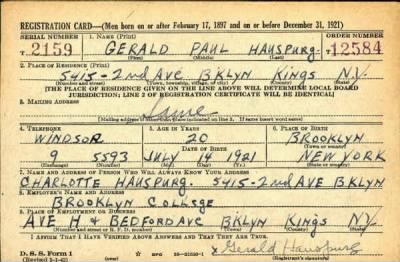 REGISTRATION CARD—(Men born on or after February 17, 1897 and on or before December 31, 1921)
SERIAL NUMBER 1. NAME (Print) ORDER NUMBER
T2159 GERALD PAUL HAUSPURG T12584
(First) (Middle) (Last)
2. PLACE OF RESIDENCE (Print)
5415-2nd AVE BKLYN KINGS N.Y.
(Number and street) (Town, township, village, or city) (County) (State)
[THE PLACE OF RESIDENCE GIVEN ON THE LINE ABOVE WILL DETERMINE LOCAL BOARD
JURISDICTION; LINE 2 OF REGISTRATION CERTIFICATE WILL BE IDENTICAL]
3. MAILING ADDRESS
Same
[Mailing address if other than place indicated on line 2. If same insert word same]
4. TELEPHONE 5. AGE IN YEARS 6. PLACE OF BIRTH
WINDSOR 20 BROOKLYN
DATE OF BIRTH (Town or county)
9 5593 JULY 14 1921 NEW YORK
(Exchange) (Number) (Mo.) (Day) (Yr.) (State or country)
7. NAME AND ADDRESS OF PERSON WHO WILL ALWAYS KNOW YOUR ADDRESS
CHARLOTTE HAUSPURG. 5415-2nd AVE BKLYN
8. EMPLOYER'S NAME AND ADDRESS
BROOKLYN COLLEGE
9. PLACE OF EMPLOYMENT OR BUSINESS
AVE H & BEDFORD AVE BKLYN KINGS N.Y.
(Number and street or R. F. D. number) (Town) (County) (State)
I AFFIRM THAT I HAVE VERIFIED ABOVE ANSWERS AND THAT THEY ARE TRUE.
D. S. S. Form 1 GPO
x Gerald Hauspurg